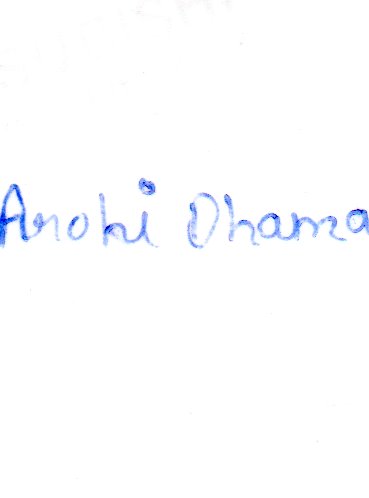 Arohi Dhama